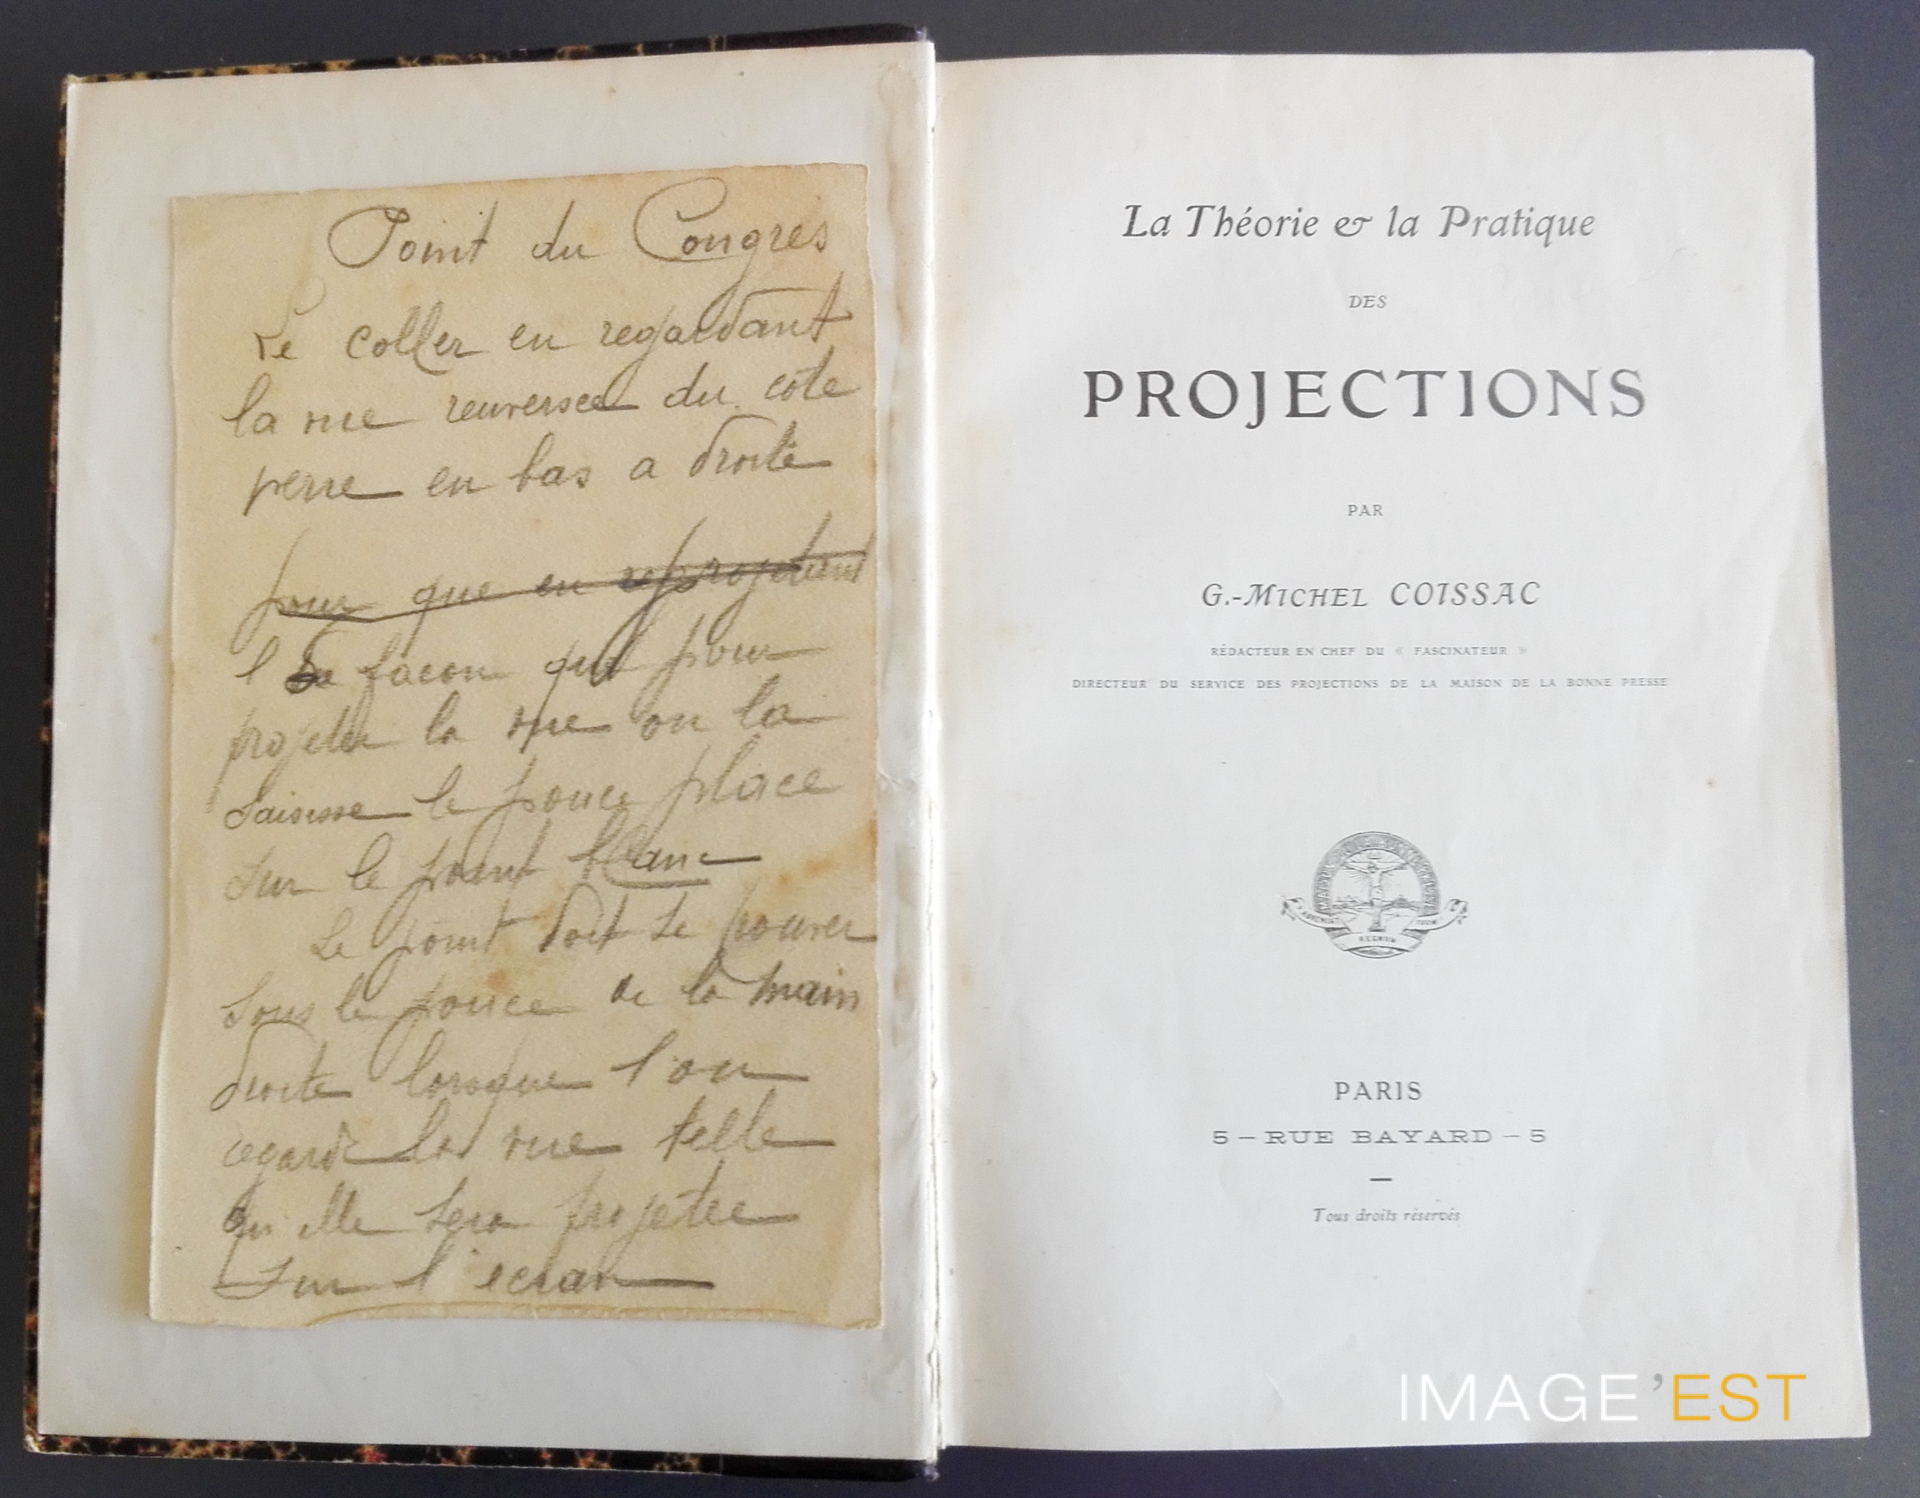 Point du Congrès
Le coller en regardant
la vue renversee du cote
verre en bas a droite
pour que en reprojetant
l de facon que pour
projeter la vue on la
saisisse le pouce place
sur le point blanc
Le point doit se trouver
sous le pouce de la main
droite lorsque l'on
regarde la vue telle
qu'elle sera projetee
sur l'ecran
La Théorie & la Pratique
DES
PROJECTIONS
PAR
G.-MICHEL COISSAC
RÉDACTEUR EN CHEF DU « FASCINATEUR »
DIRECTEUR DU SERVICE DES PROJECTIONS DE LA MAISON DE LA BONNE PRESSE
ADVENIAT REGNUM TUUM
PARIS
5 — RUE BAYARD — 5
Tous droits réservés
IMAGE'EST